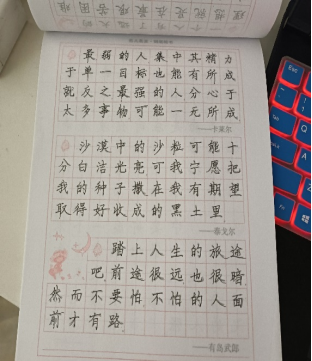 最弱的人集中其精力
于单一目标也能有所成
就反之最强的人分心于
太多事物可能一无所成
——卡莱尔
沙漠中的沙粒可能十
分白洁光亮可我宁愿把
我的种子撒在我有期望
取得好收成的黑土里
——泰戈尔
踏上人生的旅途
吧前途很远也很暗
然而不要怕不怕的人面
前才有路
——有岛武郎